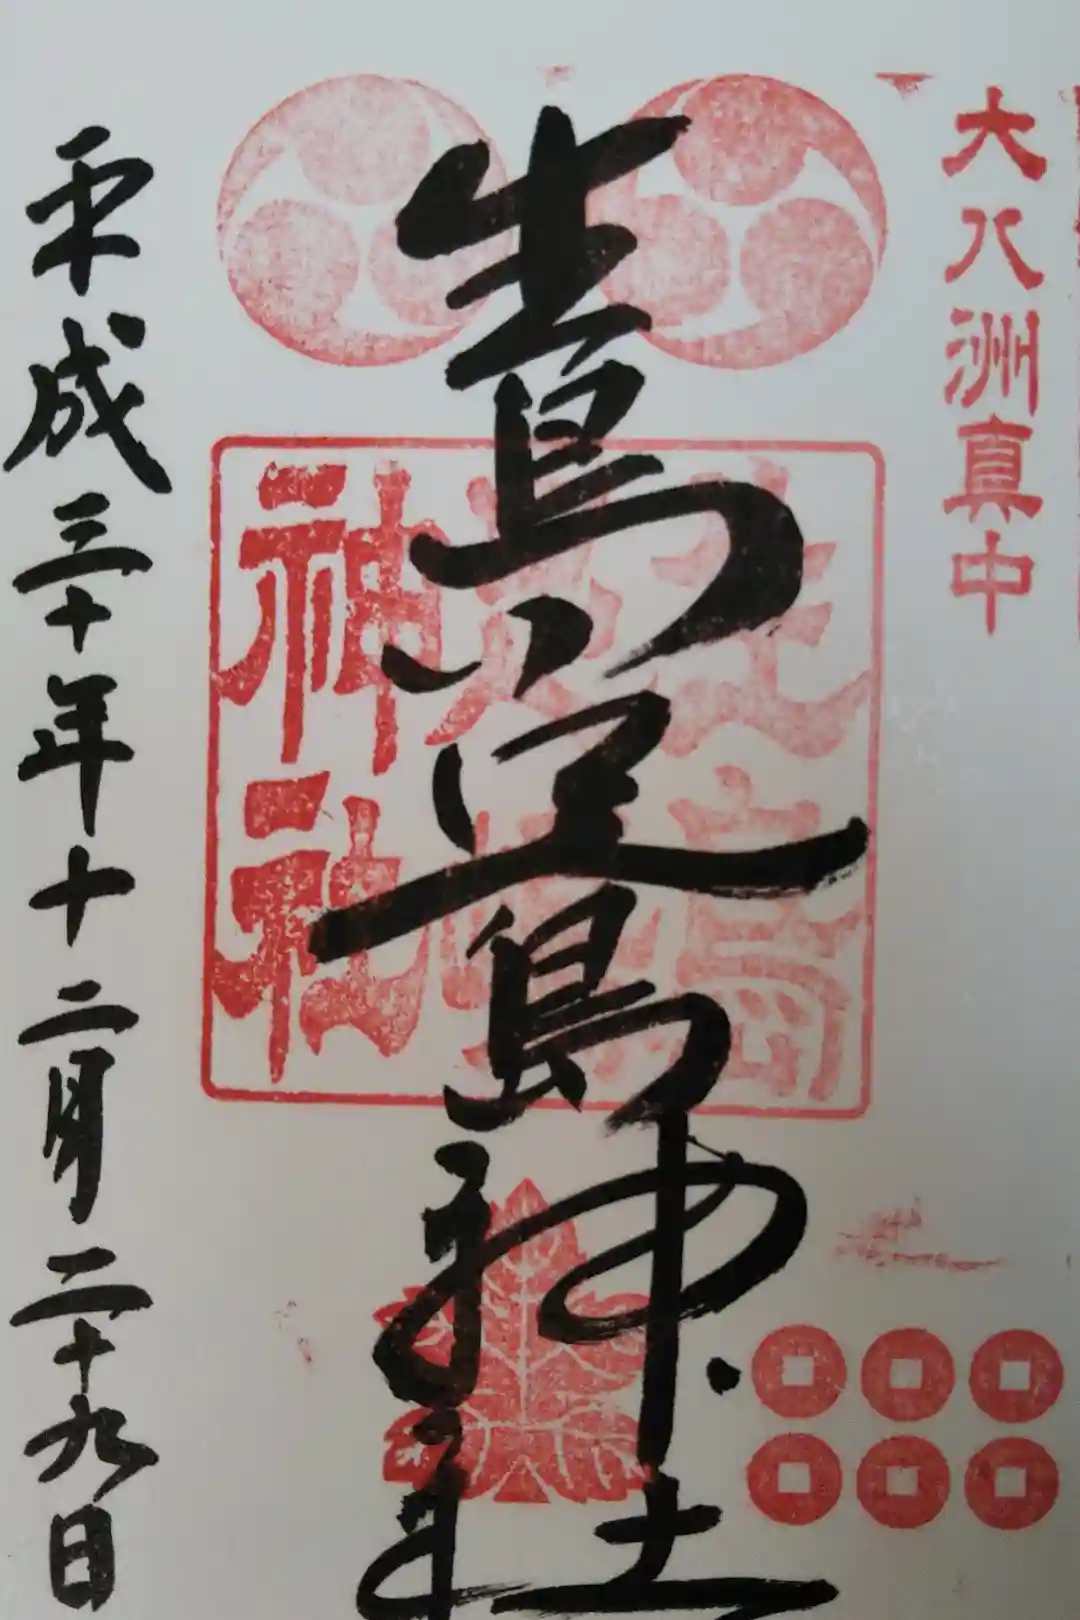 大八洲真中
生島足島神社
神社
平成三十年十二月二十九日